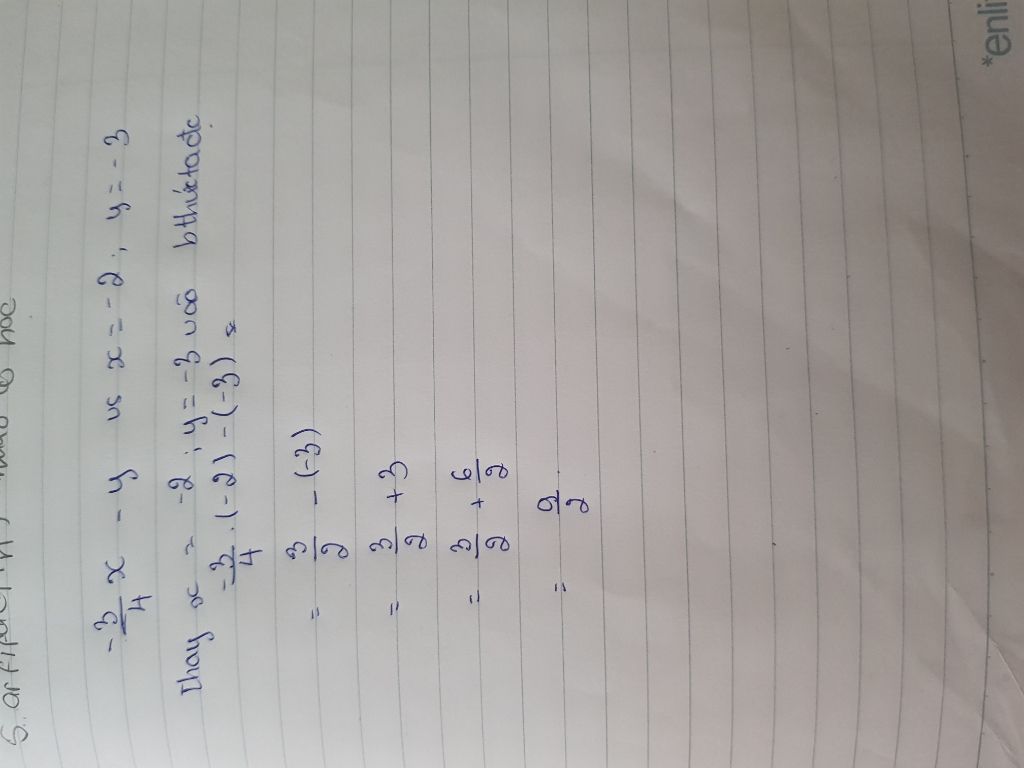 -3/4 x - y vs x = -2 ; y = -3
Thay x = -2 ; y = -3 vào bthức ta đc
-3/4 . (-2) - (-3)
= 3/2 - (-3)
= 3/2 + 3
= 3/2 + 6/2
= 9/2
*enli